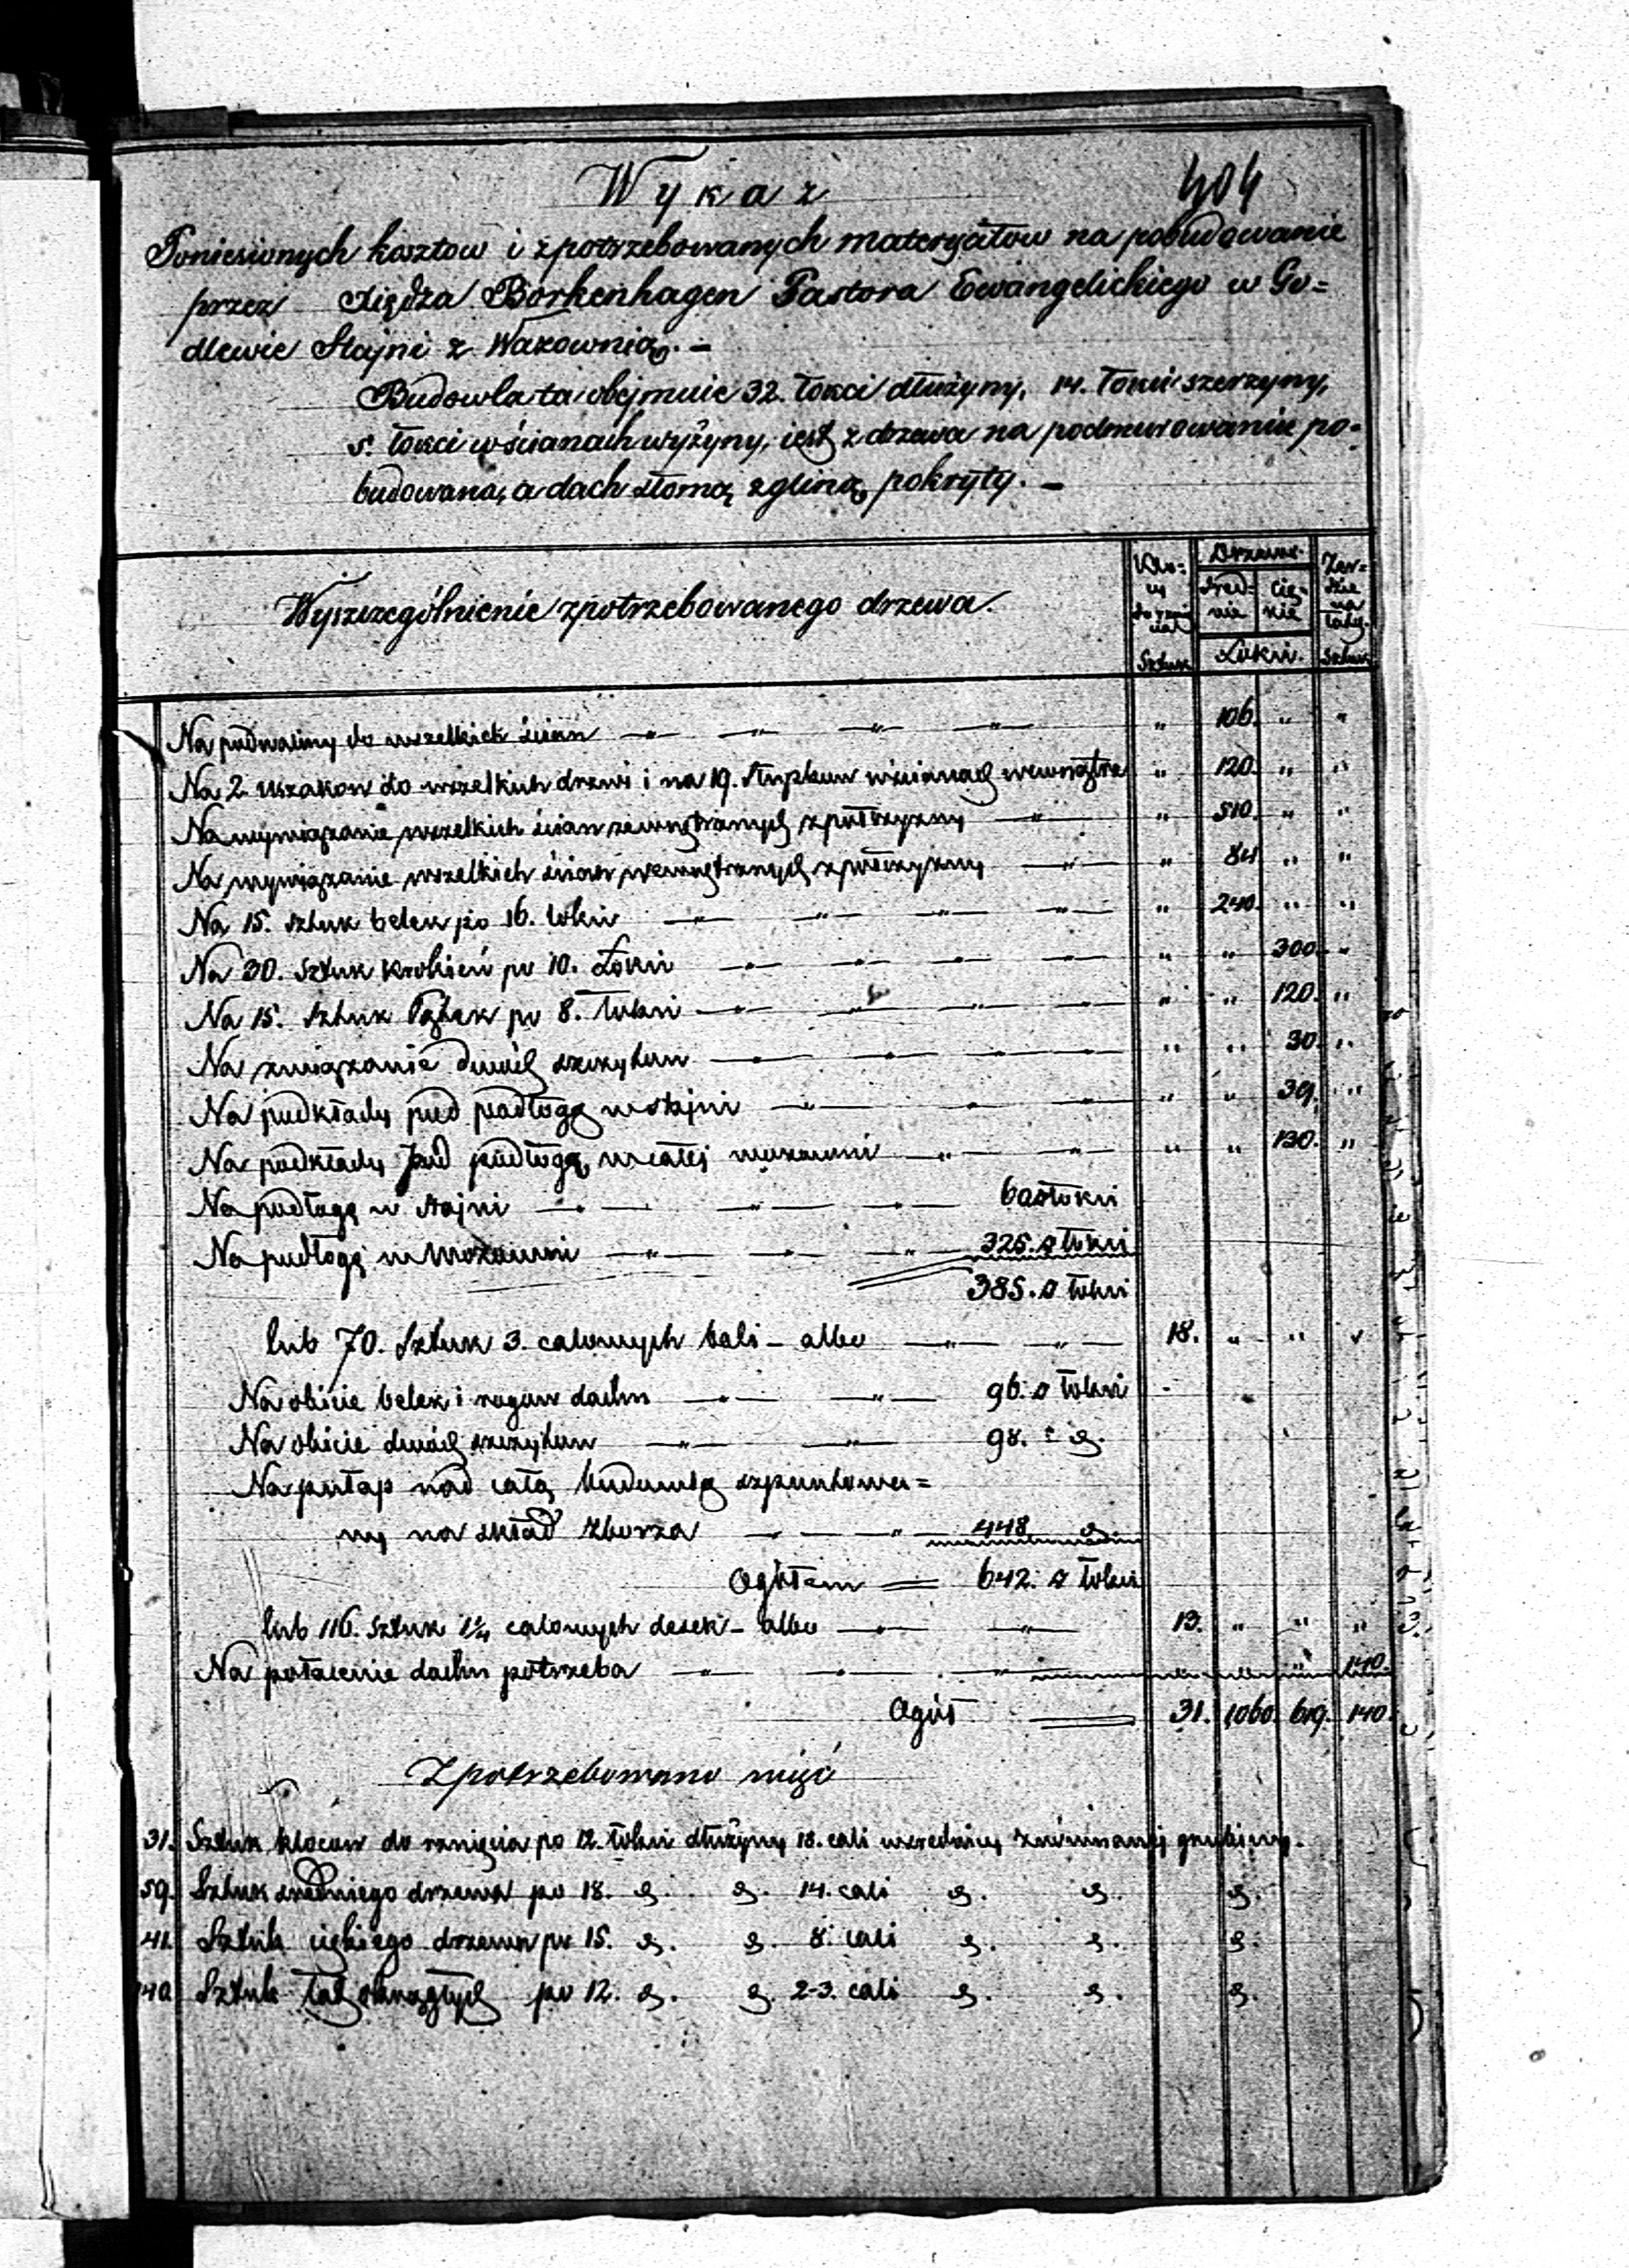 404
Wykaz
Poniesionych kosztow i zpotrzebowanych materyałow na pobudowanie
przez Xiędza Borkenhagen Pastora Ewangelickiego w Go=
dlewie Stajni z Wazownią. –
Budowla ta obejmuie 32. łokci dłużyny, 14. łokci szerzyny,
5. łokci w ścianach wyżyny, iest z drzewa na podmurowaniu po=
budowana, a dach słomą z gliną pokryty. –
Wyszczególnienie zpotrzebowanego drzewa.
Klo= Drzewa Zer=
cy Śred= cię= dzie
nie kie na
łaty.
Sztuk Łokci. Sztuk
Na podwaliny do wszelkich ścian " " " " " 106. " "
Na 2 uszakow do wszelkich drzwi i na 19. słupkow w ścianach wewnątrz " 120. " "
Na wywiązanie wszelkich ścian zewnętrznych z połszyzny " " 510. " "
Na wywiązanie wszelkich ścian wewnętrznych z połszyzny " " 84 " "
Na 15. sztuk belek po 16. łokci " " " " " 240. " "
Na 30. Sztuk krokiew po 10. Łokci " " " " " " 300. "
Na 15. Sztuk Bątek po 8. łokci " " " " " 120. "
Na związanie dwóch szczytow " " " " " 30. "
Na podkłady pod podłogę w stajni " " " " " 39. "
Na podkłady pod podłogę w całej wozowni " " " " " 130. "
Na podłogę w stajni " " " 60 □ łokci
Na podłogę w Wozowni " " " 325. □ łokci
385. □ łokci
lub 70. Sztuk 3. calowych bali – albo " " 18. " " "
Na obicie belek i rogow dachu " " 96. □ łokci
Na obicie dwóch szczytow " " 98. " d.
Na pułap nad całą budowlą szpuntowa=
ny na skład zborza " " 448 d.
Ogółem 642. □ łokci
lub 116. Sztuk 1¼ calowych desek – albo " " 13. " " "
Na połacenie dachu potrzeba " " " " " " 140.
Ogół 31. 1060. 619. 140.
Zpotrzebowano więc
31. Sztuk klocow do rznięcia po 12. łokci dłużyny 18. cali w srednicy zrównanej grubiny.
59. Sztuk sredniego drzewa po 18. d. d. 14. cali d. d. d.
41. Sztuk ciękiego drzewa po 15. d. d. 8. cali d. d. d.
140 Sztuk łat okrągłych po 12. d. d. 2-3. cali d. d. d.